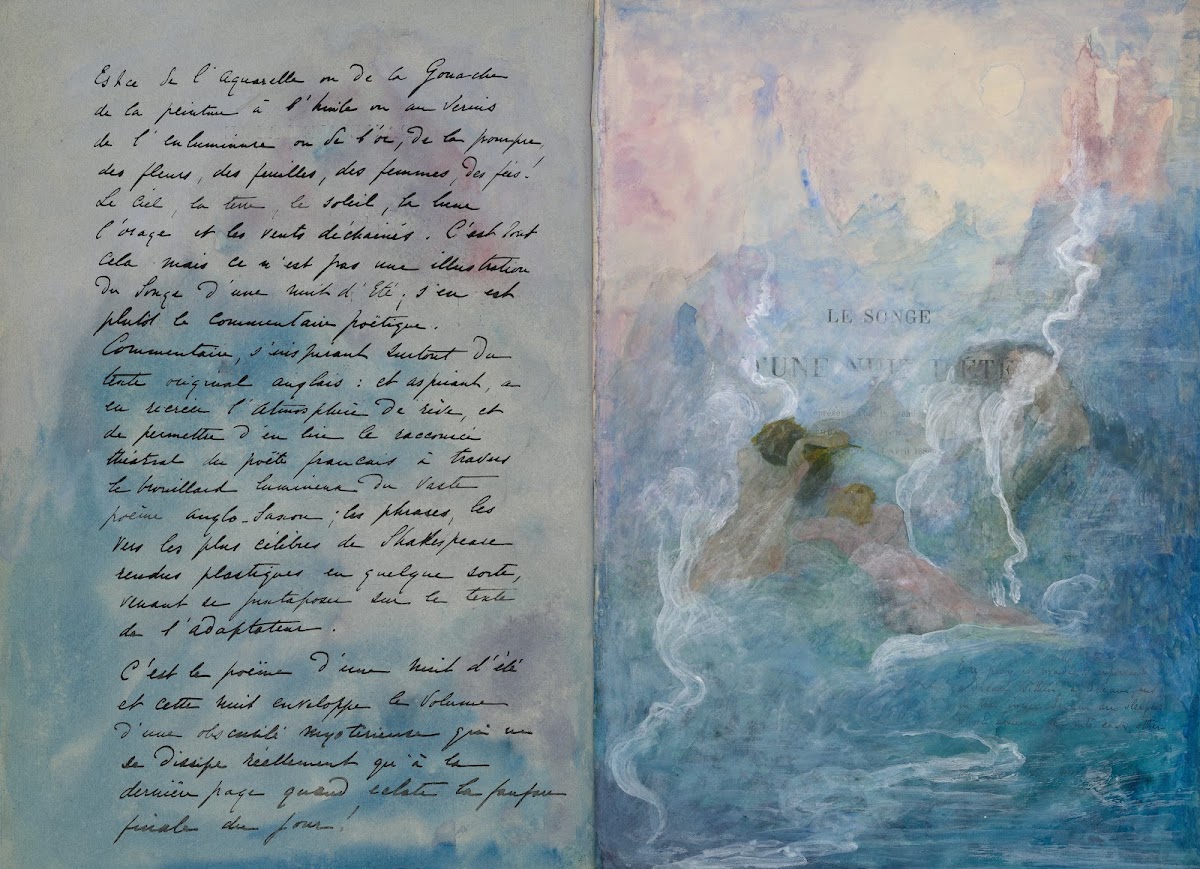 Est ce de l'aquarelle ou de la Gouache
de la peinture à l'huile ou au Vernis
de l'enluminure ou de l'or, de la pourpre,
des fleurs, des feuilles, des femmes, des feés!
Le Ciel, la terre, le soleil, la lune
l'orage et les vents déchainés. C'est tout
cela mais ce n'est pas une illustration
du Songe d'une nuit d'Eté; s'en est
plutôt le commentaire poëtique.
Commentaire, s'inspirant surtout du
texte original anglais : et aspirant, a
en recréer l'atmosphère de rêve, et
de permettre d'en lire le raccourci
théatral du poëte français à travers
le brouillard lumineux du vaste
poëme anglo-saxon ; les phrases, les
vers les plus célèbres de Shakespeare
rendus plastiques en quelque sorte,
venant se juxtaposer sur le texte
de l'adaptateur.
C'est le poëme d'une nuit d'été
et cette nuit enveloppe le volume
d'une obscurité mystérieuse qui ne
se dissipe réellement qu'à la
dernière page quand éclate la fanfare
finale du jour!
LE SONGE
D'UNE NUIT D'ÉTÉ